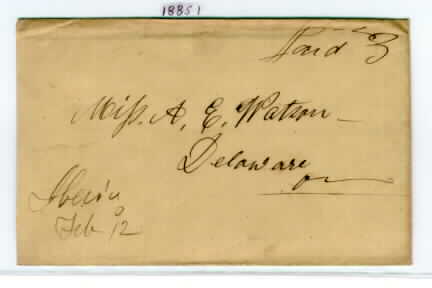 18851
Paid 3
Miss. A. E. Watson
Delaware
O
Iberia
Feb 12